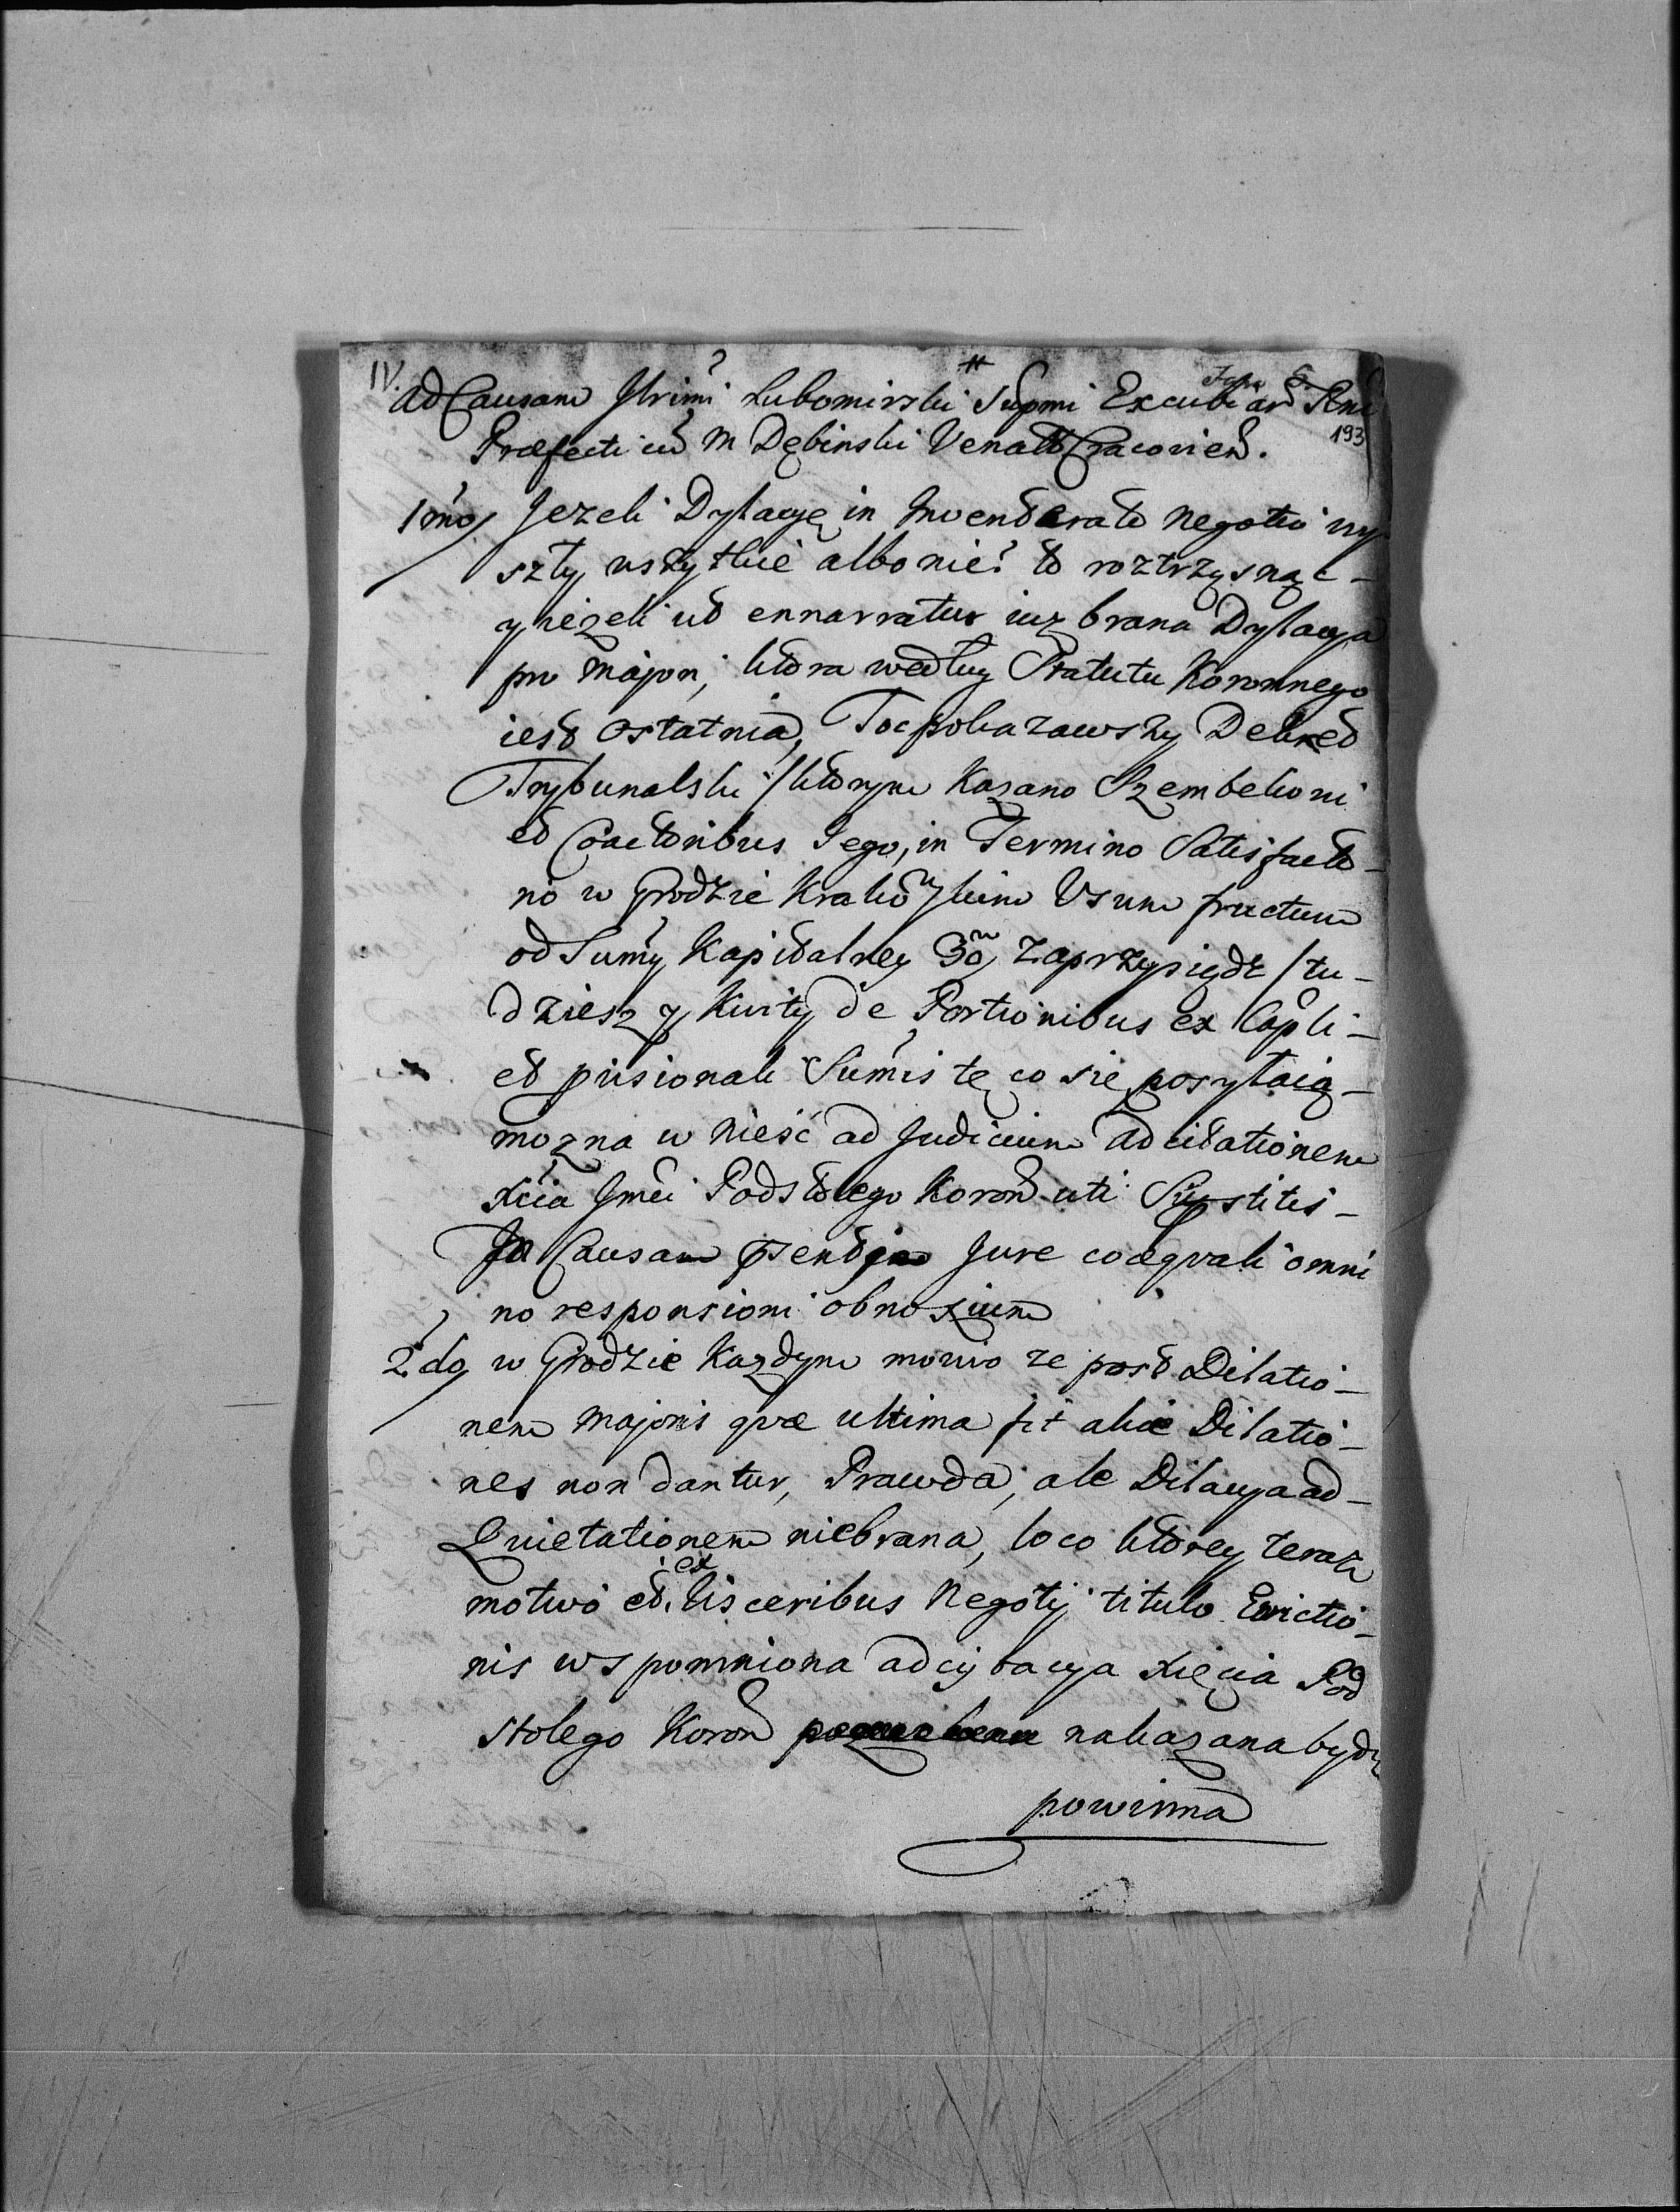 IV.
Ad Causam Illrimi Lubomirski Supmi Excubiar Rni
193
Præfecti cū M Dębinski Venatt Cracovien.
1mo Jezeli Dylacyę in Inventerato Negotio wy
szły wszytkie albo nie? to roztrzysnąc -
y iezeli ut ennarratur iuz brana Dylacya
pro majori, ktora według Statutu Koronnego
iest ostatnia, Toc pokazawszy Dekret
Trybunalski / ktorym Kazano Szembekowi
et Coactoribus Jego, in Termino Satisfacto -
rio w Grodzie Krakowskim Usum fructum
od Sumy Kapitalney 30 zaprzysiędz / tu -
dziesz y Kwity de Portionibus ex Capli -
et pvisionali Sumis te co sie posyłaią -
mozna w nieść ad Judicium Adcitationem
Xcia Jmci Podstolego Koron uti
Causam Jure coæqvali omni
no responsioni obnoxium
2do w Grodzie Kazdym mowio ze post Dilatio -
nem majoris qvæ ultima fit aliæ Dilatio -
nes non dantur, Prawda, ale Dilacya ad -
Quietationem niebrana, loco ktorey teraz
motivo et ex Visceribus Negotij titulo Evictio -
nis wspomniona adcytacya Xięcia Pod
stolego Koron nakazana bydz
powinna